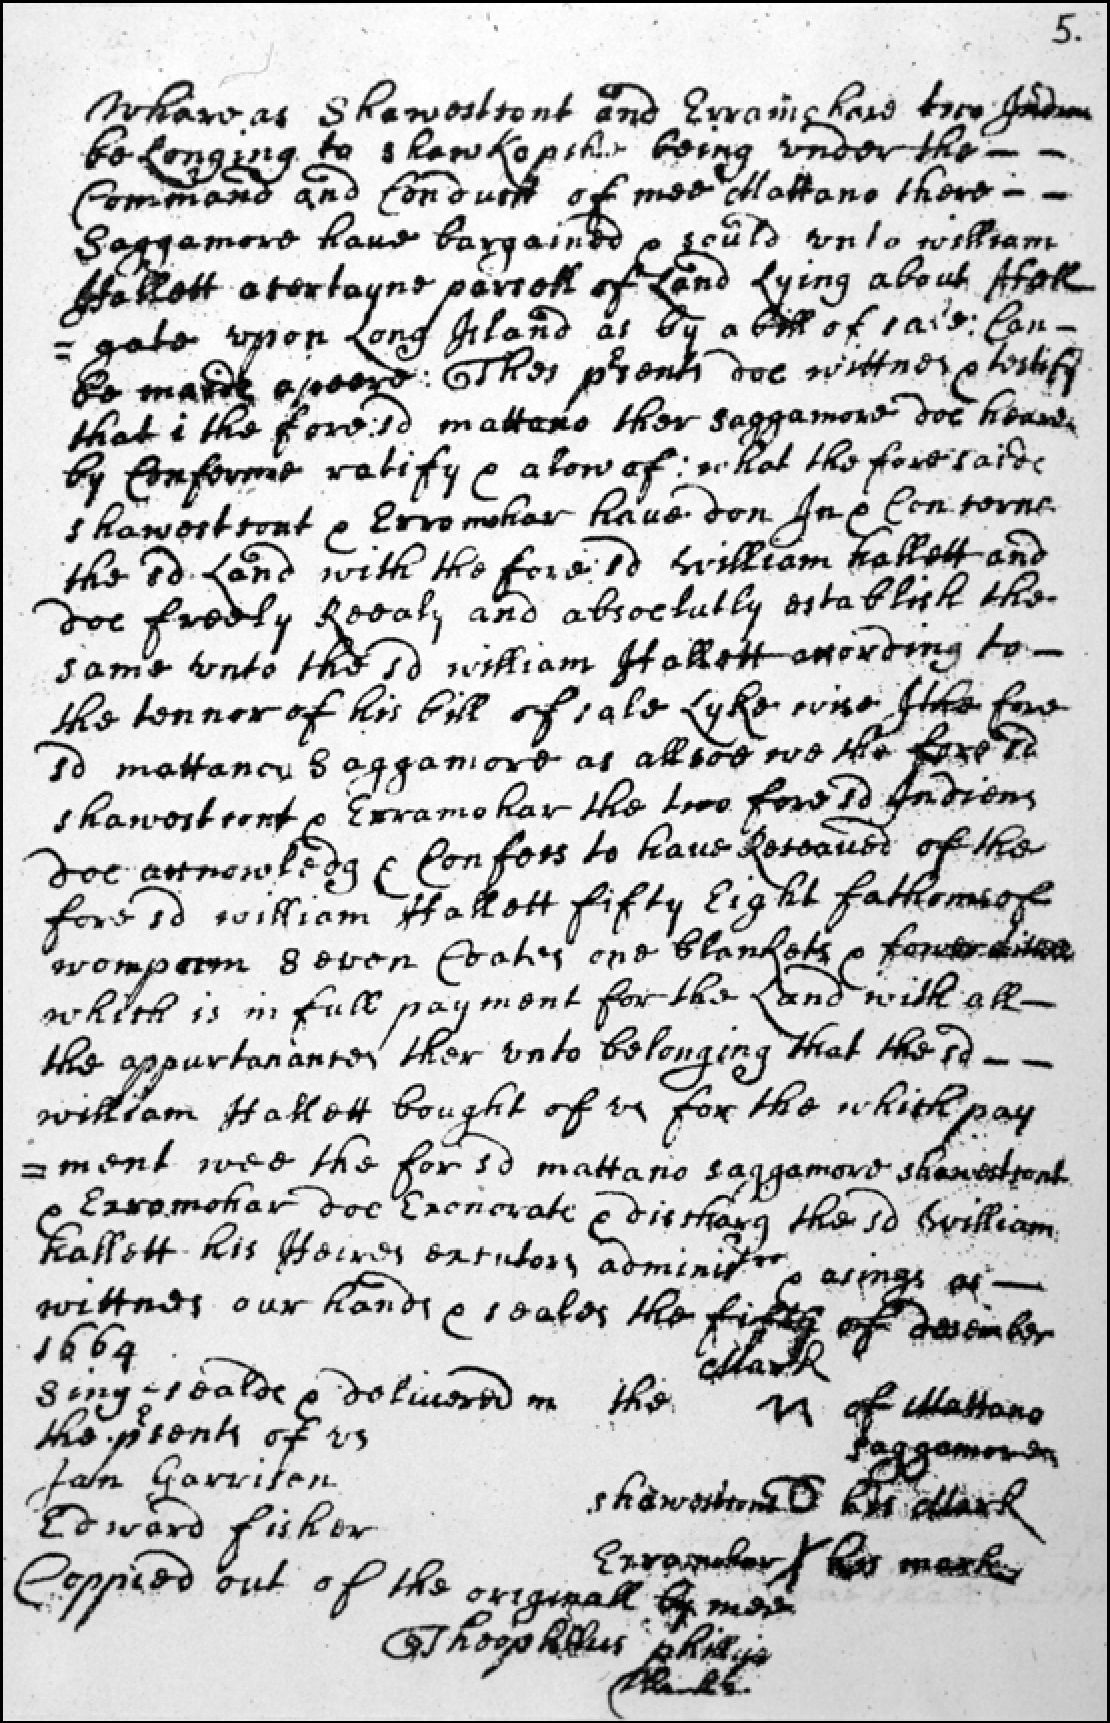 5.
Whare as Shawestsont and Erramohare two Indians
be Longing to shawkopshe being vnder the – –
Command and Conduitt of mee Mattano there – –
Saggamore haue bargained & sould vnto william
Hallett a certayne parcell of Land Lying about Hell
= gate vpon Long Island as by a bill of sale: Can –
be made apeere: Thes prsents doe wittnes & testify
that i the fore:sd mattano ther saggamore doe heare
by Conferme ratify & alow of: what the foresaide
shawestsont & Erramohar haue don In & Conserne
the sd Land with the fore:sd William hallett and
doe freely Reealy and absoclutly establish the
same vnto the sd william Hallett according to –
the tennor of his bill of sale Lyke wise I the fore
sd mattano Saggamore as allsoe we the fore sd
shawestsont & Erramohar the two fore sd Indiens
doe acknowledg & Confess to haue Reseaued of the
fore sd william Hallett fifty Eight fathoms of
wompom Seven Coates one blankets &
which is in full payment for the Land with all –
the appurtanances ther vnto belonging that the sd – –
william Hallett bought of vs for the which pay
= ment wee the for sd mattano saggamore shawestsont
& Erramohar doe Exonerate & discharg the sd William
hallett his Heires exsutors administrr & asings as –
wittnes our hands & seales the fifty of desember
1664
Sing-sealde & delivered in the Mark of Mattano
the prsents of vs saggamore
Jan Garrisen
shawestsont his Mark
Edward fisher
Erramohar his mark
Coppied out of the originall by mee
Theophillus phillips
Clarke.